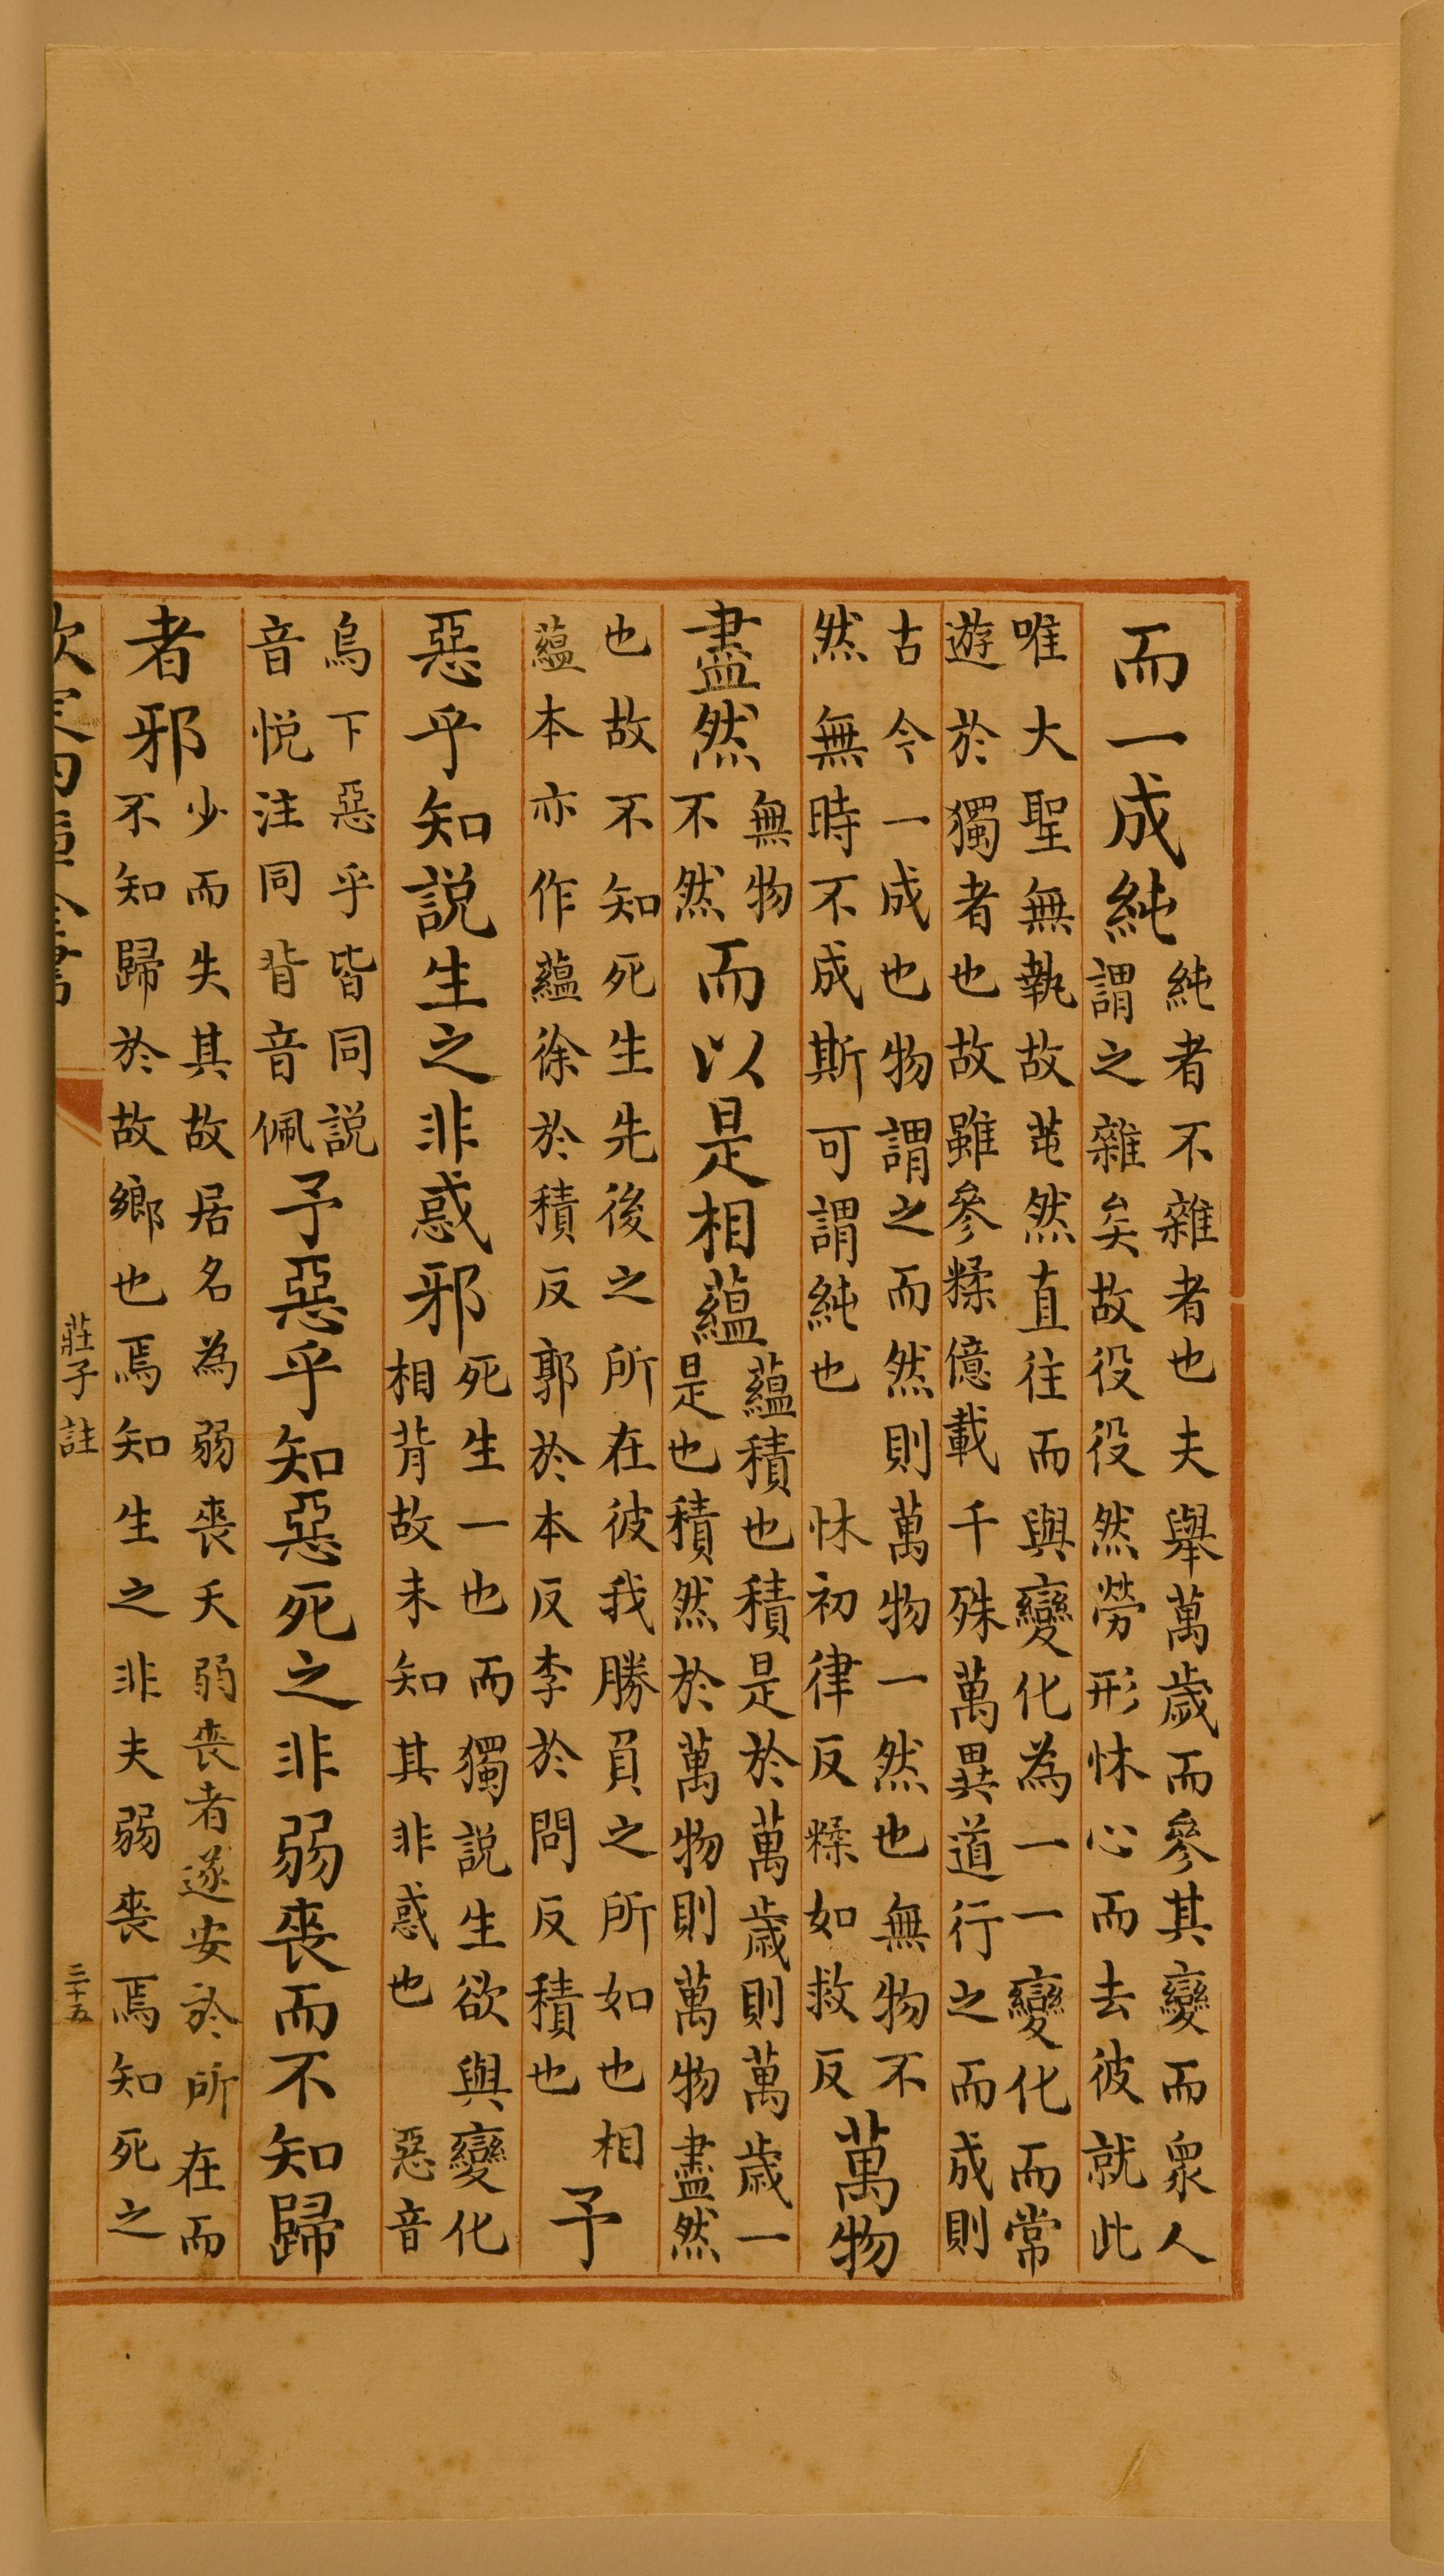 而一成純純者不雜者也夫舉萬歲而參其變而衆人
謂之雜矣故役役然勞形怵心而去彼就此
唯大聖無執故芚然直往而與變化為一一變化而常
遊於獨者也故雖參糅億載千殊萬異道行之而成則
古今一成也物謂之而然則萬物一然也無物不
然無時不成斯可謂純也 怵初律反糅如救反萬物
盡然無物
不然而以是相蘊蘊積也積是於萬歲則萬歲一
是也積然於萬物則萬物盡然
也故不知死生先後之所在彼我勝負之所如也 相
蘊本亦作蘊徐於積反郭於本反李於問反積也予
惡乎知說生之非惑邪死生一也而獨說生欲與變化
相背故未知其非惑也 惡音
烏下惡乎皆同說
音悅注同背音佩予惡乎知惡死之非弱喪而不知歸
者邪少而失其故居名為弱喪夭弱喪者遂安於所在而
不知歸於故鄉也焉知生之非夫弱喪焉知死之
莊子註
三十五